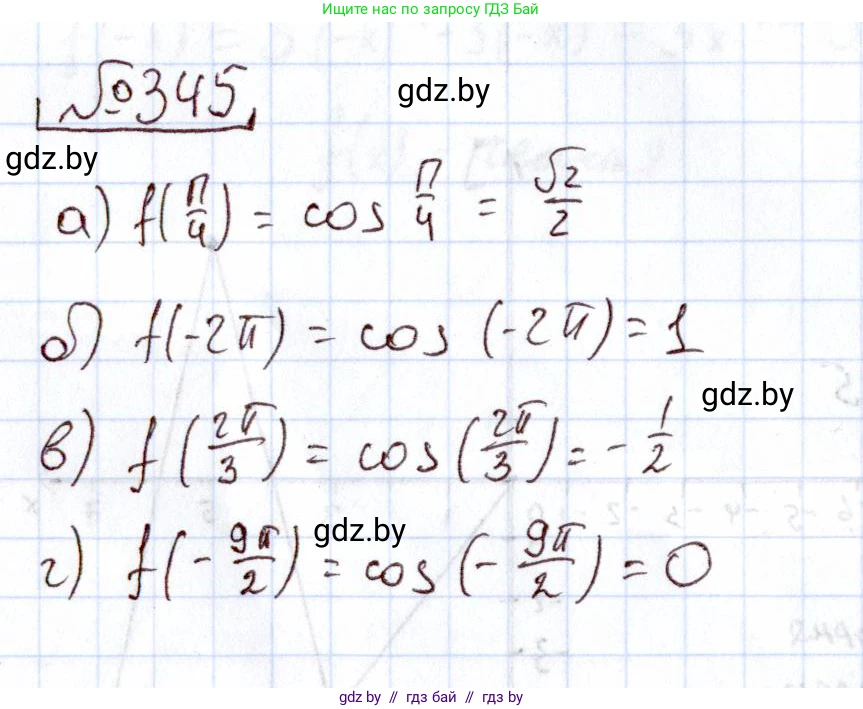 Ищите нас по запросу ГДЗ Бай
№345
gdz.by
gdz.by
а) f(π/4) = cos π/4 = √2/2
б) f(-2π) = cos (-2π) = 1
gdz.by
в) f(2π/3) = cos(2π/3) = -1/2
gdz.by
г) f(-9π/2) = cos(-9π/2) = 0
gdz.by // гдз бай // гдз by